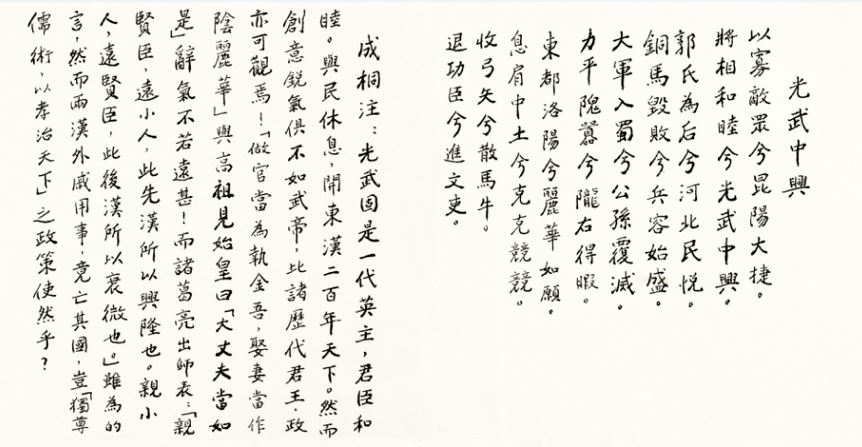 光武中興
以寡敵眾兮昆陽大捷。
將相和睦兮光武中興。
郭氏為后兮河北民悅。
銅馬毀敗兮兵容始盛。
大軍入蜀兮公孫覆滅。
力平隗囂兮隴右得暇。
東都洛陽兮麗華如願。
息肩中土兮克克競競。
收弓矢兮散馬牛。
退功臣兮進文吏。
成桐注：光武固是一代英主，君臣和
睦。與民休息，開東漢二百年天下。然而
創意銳氣俱不如武帝，比諸歷代君王，政
亦可觀焉！「做官當為執金吾，娶妻當作
陰麗華」與高祖見始皇曰「大丈夫當如
是」辭氣不若遠甚！而諸葛亮出師表：「親
賢臣，遠小人，此先漢所以興隆也。親小
人，遠賢臣，此後漢所以衰微也。」雖為的
言，然而兩漢外戚用事，竟亡其國，豈「獨尊
儒術，以孝治天下」之政策使然乎？